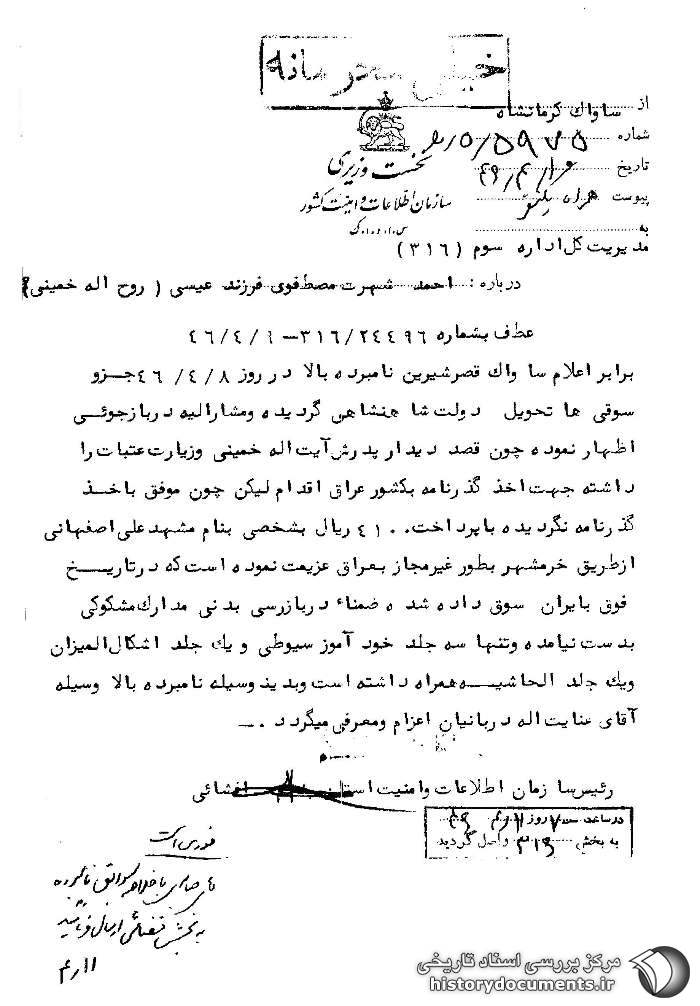 خیلی محرمانه
از ساواك كرمانشاه
شماره ۵/۵۹۷۵
تاریخ ۴۶/۴/۱۰
پیوست
به
نخست وزیری
سازمان اطلاعات و امنیت کشور
س.ا.و.ا.ک
مدیریت کل اداره سوم (۳۱۶)
درباره : احمد شهرت مصطفوی فرزند عیسی ( روح اله خمینی)
عطف بشماره ۳۱۶/۲٤٤۹۶-٤۶/٤/۶
برابر اعلام ساواك قصرشیرین نامبرده بالا در روز ٤۶/٤/۸ جزو
سوقی ها تحویل دولت شاهنشاهی گردیده ومشارالیه دربازجوئی
اظهار نموده چون قصد دیدار پدرش آیت اله خمینی وزیارت عتبات را
داشته جهت اخذ گذرنامه بکشور عراق اقدام لیکن چون موفق باخذ
گذرنامه نگردیده باپرداخت ٤۱۰۰ ریال بشخصی بنام مشهدعلی اصفهانی
ازطریق خرمشهر بطور غیرمجاز بعراق عزیمت نموده است که درتاریخ
فوق بایران سوق داده شده ضمناً دربازرسی بدنی مدارك مشکوکی
بدست نیامده وتنها سه جلد خود آموز سیوطی و یك جلد اشکال المیزان
ویك جلد الحاشیه همراه داشته است وبدینوسیله نامبرده بالا وسیله
آقای عنایت اله دربانیان اعزام ومعرفی میگردد .ـ
رئیس سازمان اطلاعات وامنیت استان افشائی
در ساعت ۷ روز ۱۱/۴/۴۶
به بخش ۳۱۶ واصل گردید
فوری است
آقای صابری با خلاصه سوابق نامبرده
به بخش قضائی ارسال فرمائید
۴/۱۱
مرکز بررسی اسناد تاریخی
historydocuments.ir